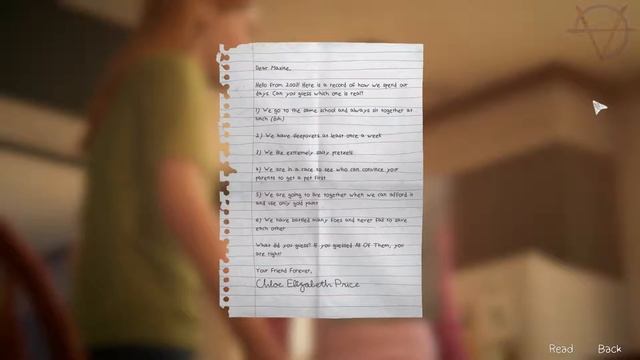 Dear Maxine,
Hello from 2008! Here is a record of how we spend our
days. Can you guess which one is real?
1) We go to the same school and always sit together at
lunch (duh)
2) We have sleepovers at least once a week
3) We like extremely salty pretzels
4) We are in a race to see who can convince your
parents to get a pet first
5) We are going to live together when we can afford it
and use only gold paint
6) We have battled many foes and never fail to save
each other
What did you guess? If you guessed All Of Them, you
are right!
Your Friend Forever,
Chloe Elizabeth Price
Read Back